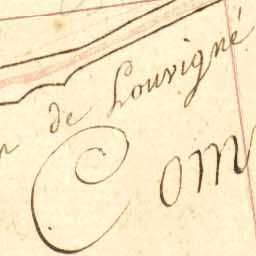 de Louvigné
Com